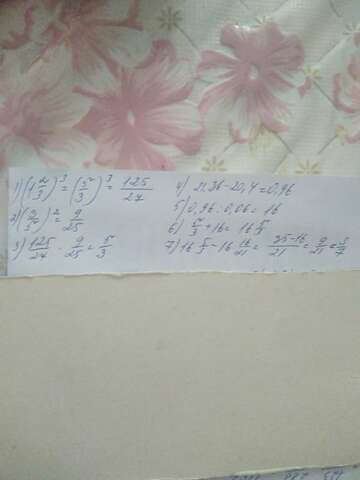 1) (1 2/3)^3 = (5/3)^3 = 125/27
2) (3/5)^2 = 9/25
3) 125/27 · 9/25 = 5/3
4) 21,36 - 20,4 = 0,96
5) 0,96 : 0,06 = 16
6) 5/3 + 16 = 16 5/3
7) 16 5/3 - 16 16/21 = 35-16/21 = 9/21 = 3/7